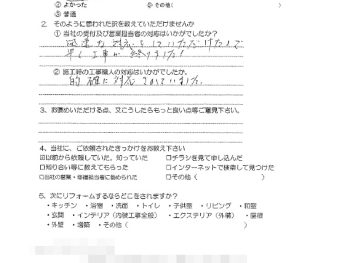 ②よかった ②その他(
③普通
2. そのように思われた訳を教えていただけませんか
①当社の受付及び営業担当者の対応はいかがでしたか?
迅速な対応をしていただけたので
早く工事が終りました!
②施工時の工事職人の対応はいかがでしたか。
的確に対応されていました。
3、お褒めいただける点、又こうしたらもっと良い点等ご意見下さい。
4、当社に、ご依頼されたきっかけをお教え下さい
以前から依頼していた、知っていた □チラシを見て申し込んだ
□知り合い等に教えてもらった □インターネットで検索して見つけた
□当社の営業・修理担当者に勧められた □その他(
5、次にリフォームするならどこをされますか?
・キッチン ・浴室 ・洗面 ・トイレ ・子供室 ・リビング ・和室
・玄関 ・インテリア(内装工事全般) ・エクステリア(外構) ・屋根
・外壁 ・増築 ・その他(